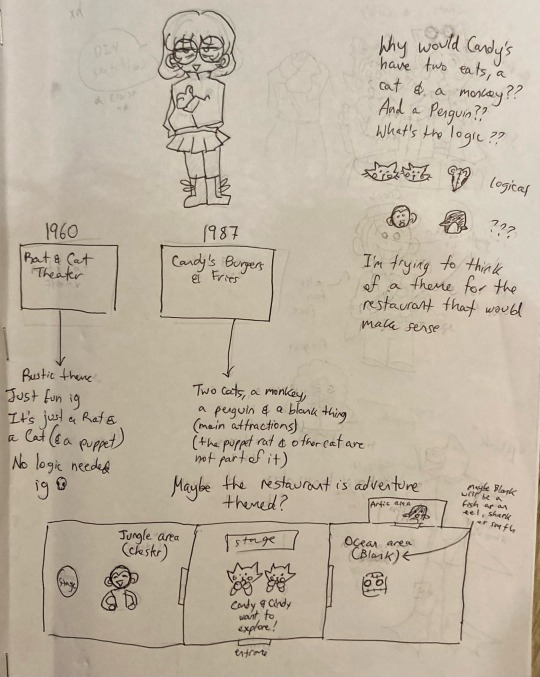 Why would Candy's
have two cats, a
cat & a monkey??
And a Penguin??
What's the logic??
logical
???
I'm trying to think
of a theme for the
restaurant that would
make sense
1960
Rat & Cat
Theater
1987
Candy's Burgers
& Fries
Rustic theme
Just fun ig
It's just a Rat &
a Cat (& a puppet)
No logic needed
ig
Two cats, a monkey,
a penguin & a blank thing
(main attractions)
(the puppet rat & other cat are
not part of it)
Maybe the restaurant is adventure
themed?
maybe Blank
will be a
fish or an
eel, shark
or smth
Artic area
Jungle area
(Chester)
stage
stage
Candy & Cindy
want to
explore!
entrance
Ocean area
(Blank)